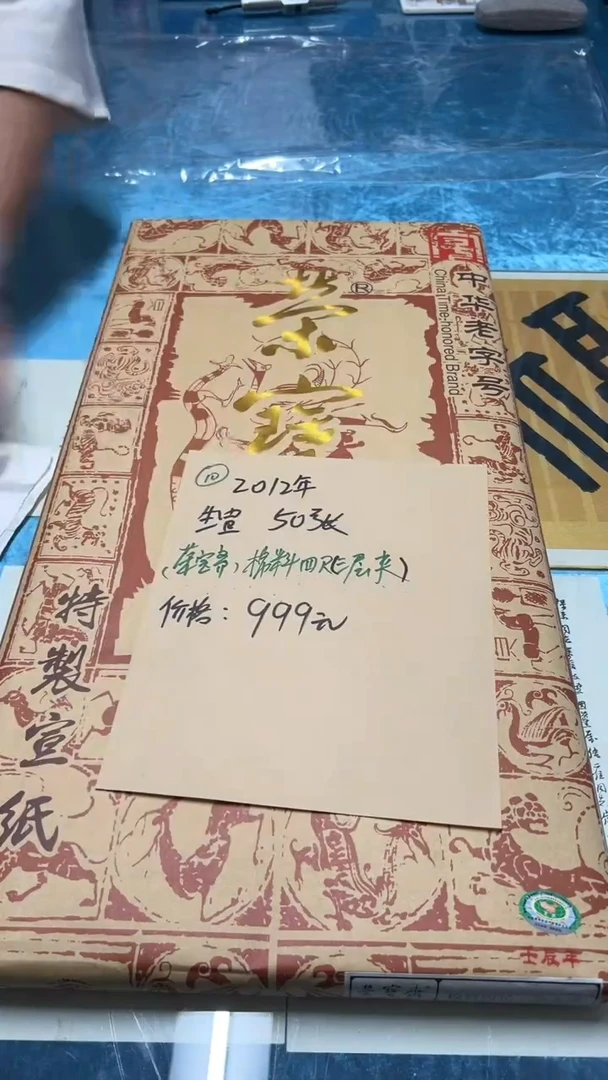 荣宝
®
中华老字号
China Time-honored Brand
⑩ 2012年
生宣 50张
(荣宝斋,棉料四尺二层夹)
价格:999元
特製宣纸
壬辰年